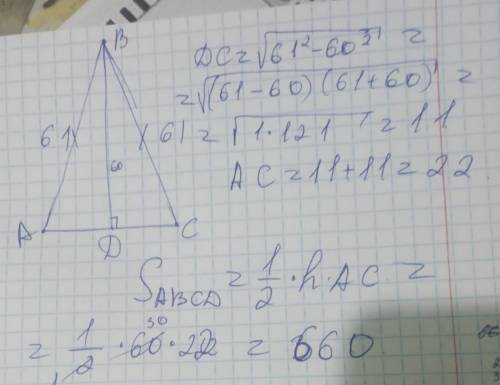 B
61
61
60
A
D
C
DC = √61² - 60² =
= √(61 - 60) (61 + 60) =
= √1 · 121 = 11
AC = 11 + 11 = 22
S_ABCD = 1/2 · h · AC =
= 1/2 · 60 · 22 = 660
30